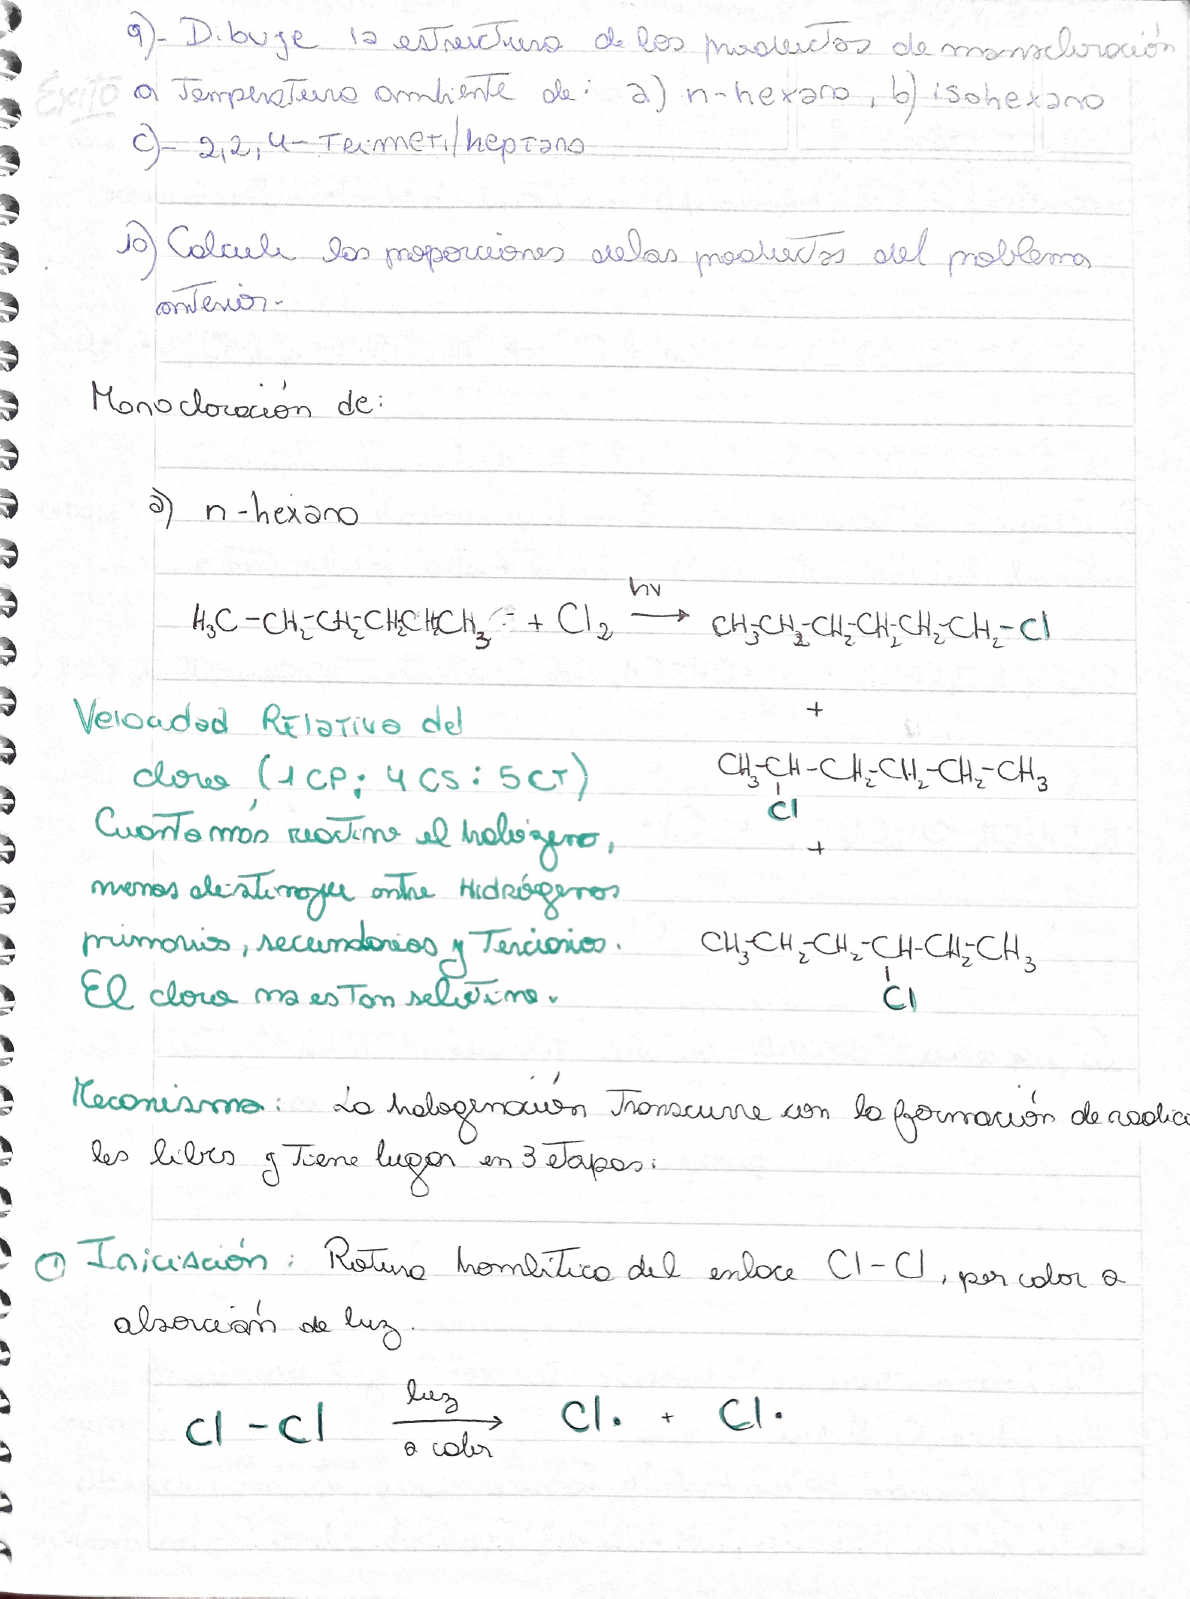 9)- Dibuje la estructura de los productos de monocloración
a temperatura ambiente de: a) n-hexano, b) isohexano
c)- 2,2,4-Trimetilheptano
Éxito
10) Calcule las proporciones de las productos del problema
anterior.-
Monocloración de:
a) n-hexano
H3C-CH2-CH2-CH2CH2CH3 + Cl2 hv → CH3-CH2-CH2-CH2-CH2-CH2-Cl
+
Velocidad Relativa del
cloro (1CP: 4CS: 5CT)
CH3-CH-CH2-CH2-CH2-CH3
Cl
Cuanto más reactivo el halógeno,
+
menos distingue entre Hidrógenos
primarios, secundarios y Terciarios.
CH3-CH2-CH2-CH-CH2-CH3
Cl
El cloro no es tan selectivo.
Mecanismo: La halogenación Transcurre con la formación de radica
les libres y Tiene lugar en 3 etapas:
① Iniciación: Rotura homolítica del enlace Cl-Cl, por calor o
absorción de luz.
Cl-Cl luz → o calor Cl· + Cl·